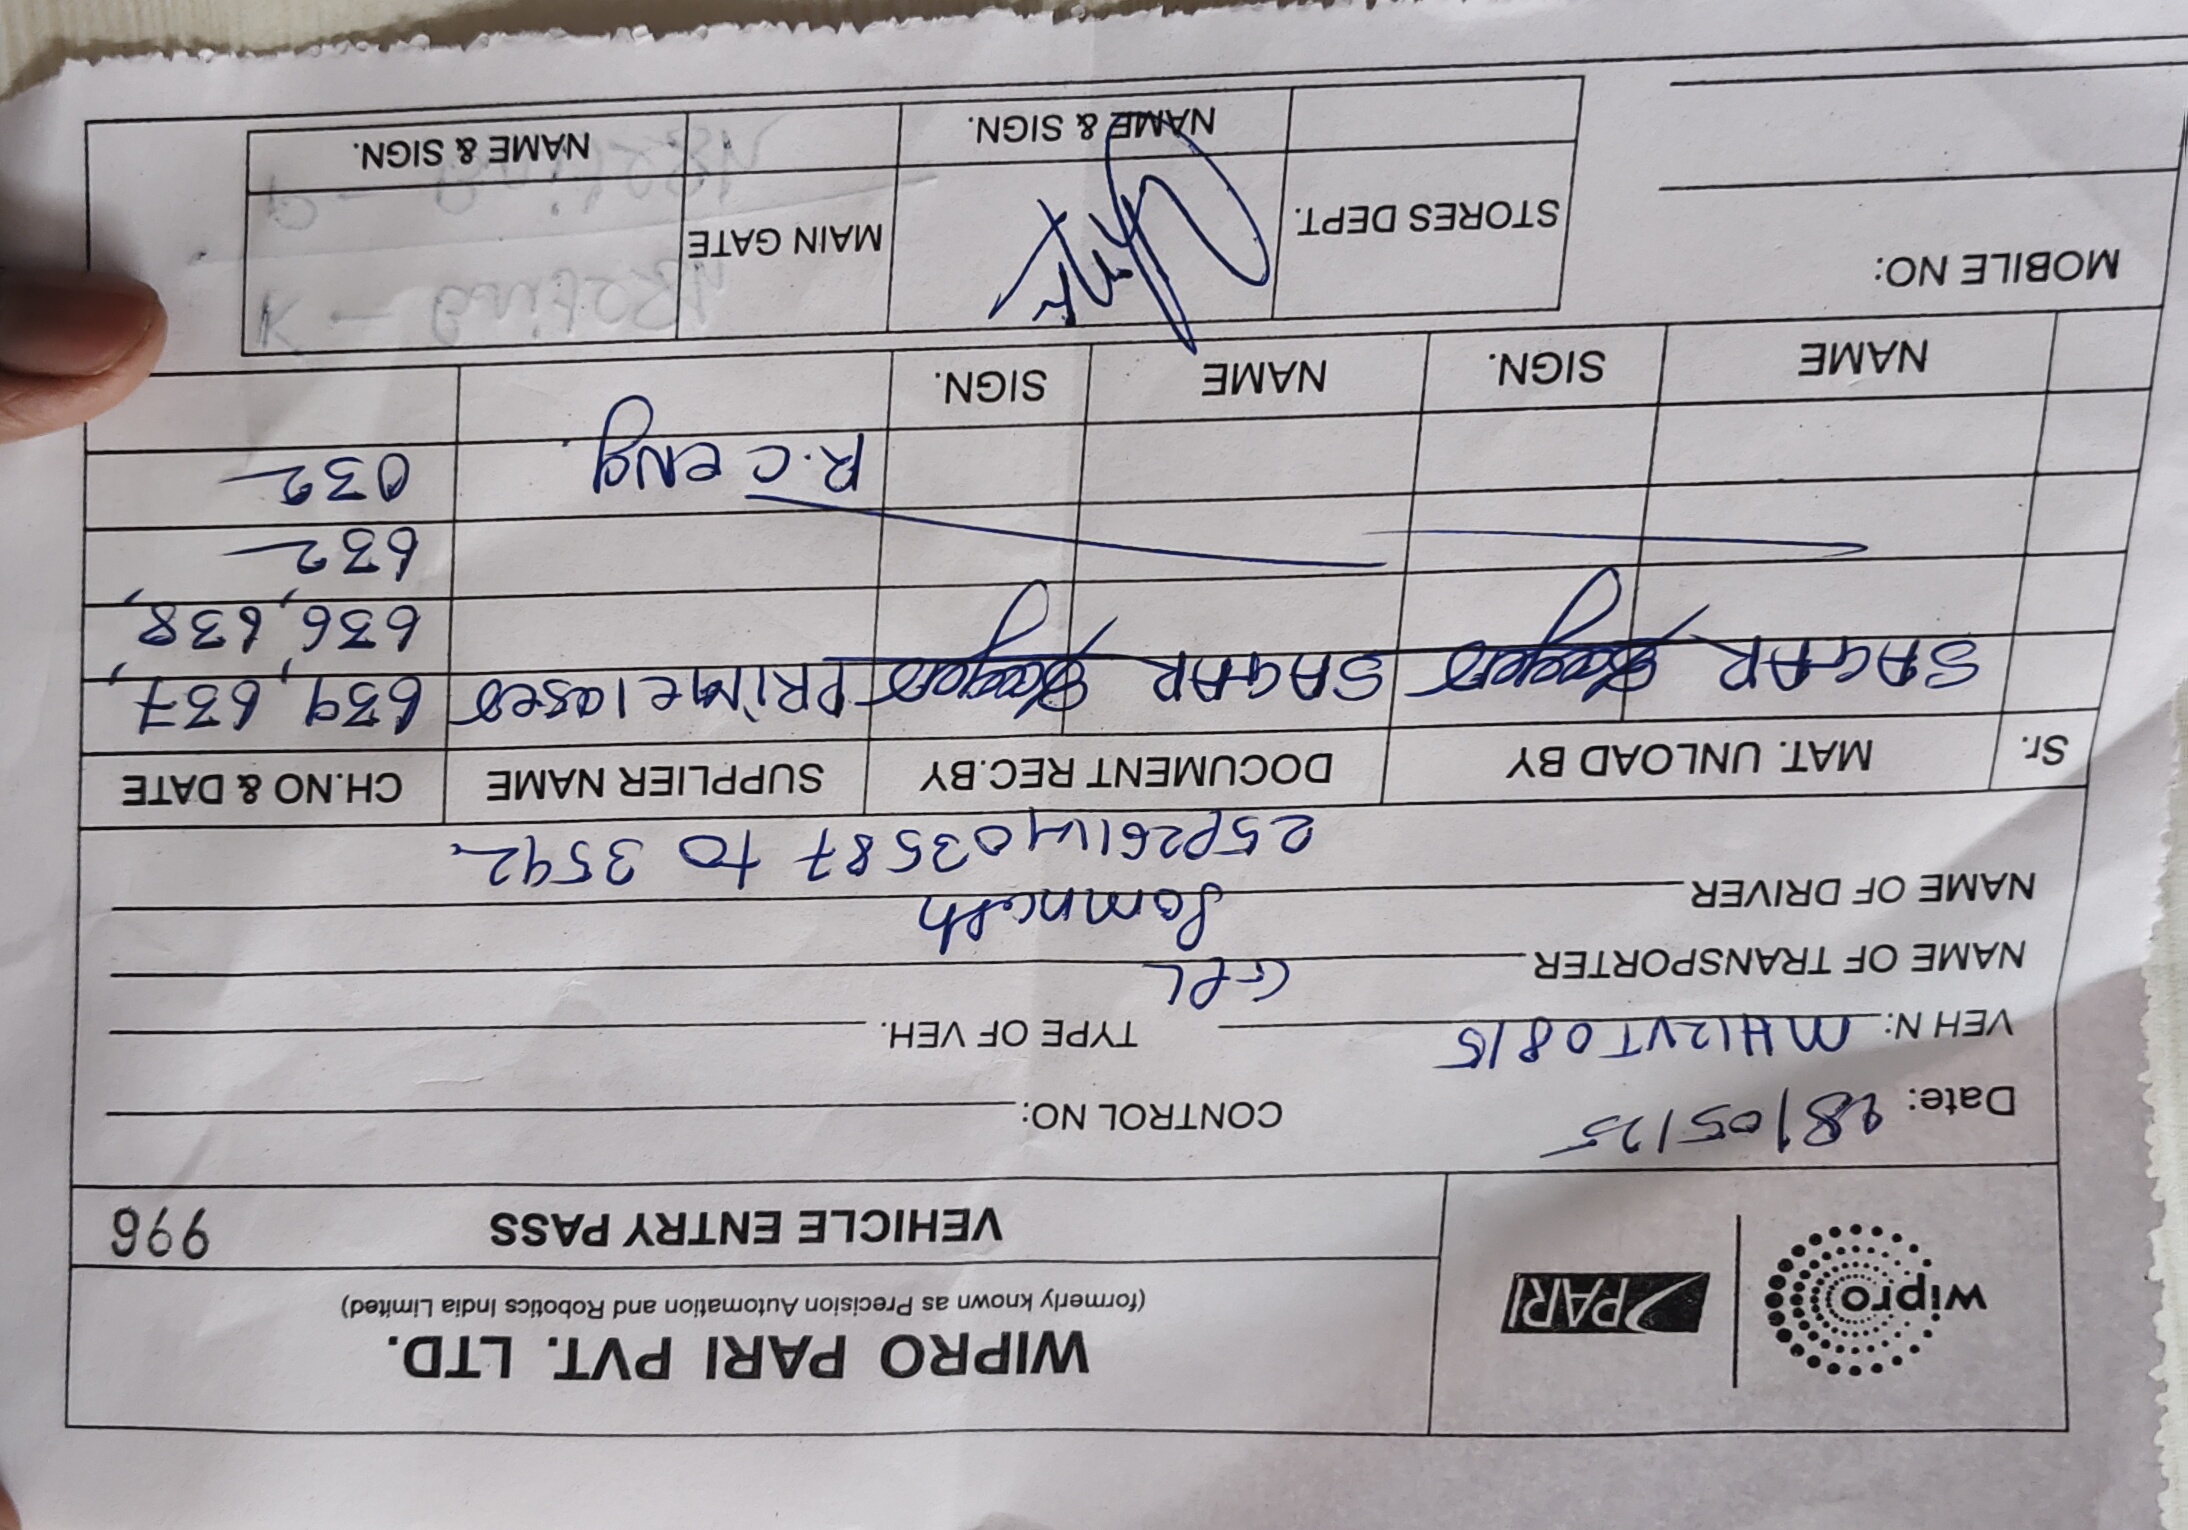 wipro PARI WIPRO PARI PVT. LTD.
(formerly known as Precision Automation and Robotics India Limited)
VEHICLE ENTRY PASS 996
Date: 28/05/25 CONTROL NO:
VEH N: MH12VT0815 TYPE OF VEH.
NAME OF TRANSPORTER GPL
NAME OF DRIVER Somnath
25P261403587 to 3592
Sr. MAT. UNLOAD BY DOCUMENT REC.BY SUPPLIER NAME CH.NO & DATE
SAGAR SAGAR PRIMElases 639, 637,
636, 638,
632
R.C eng. 032
NAME SIGN. NAME SIGN.
MOBILE NO:
STORES DEPT. MAIN GATE
NAME & SIGN. NAME & SIGN.